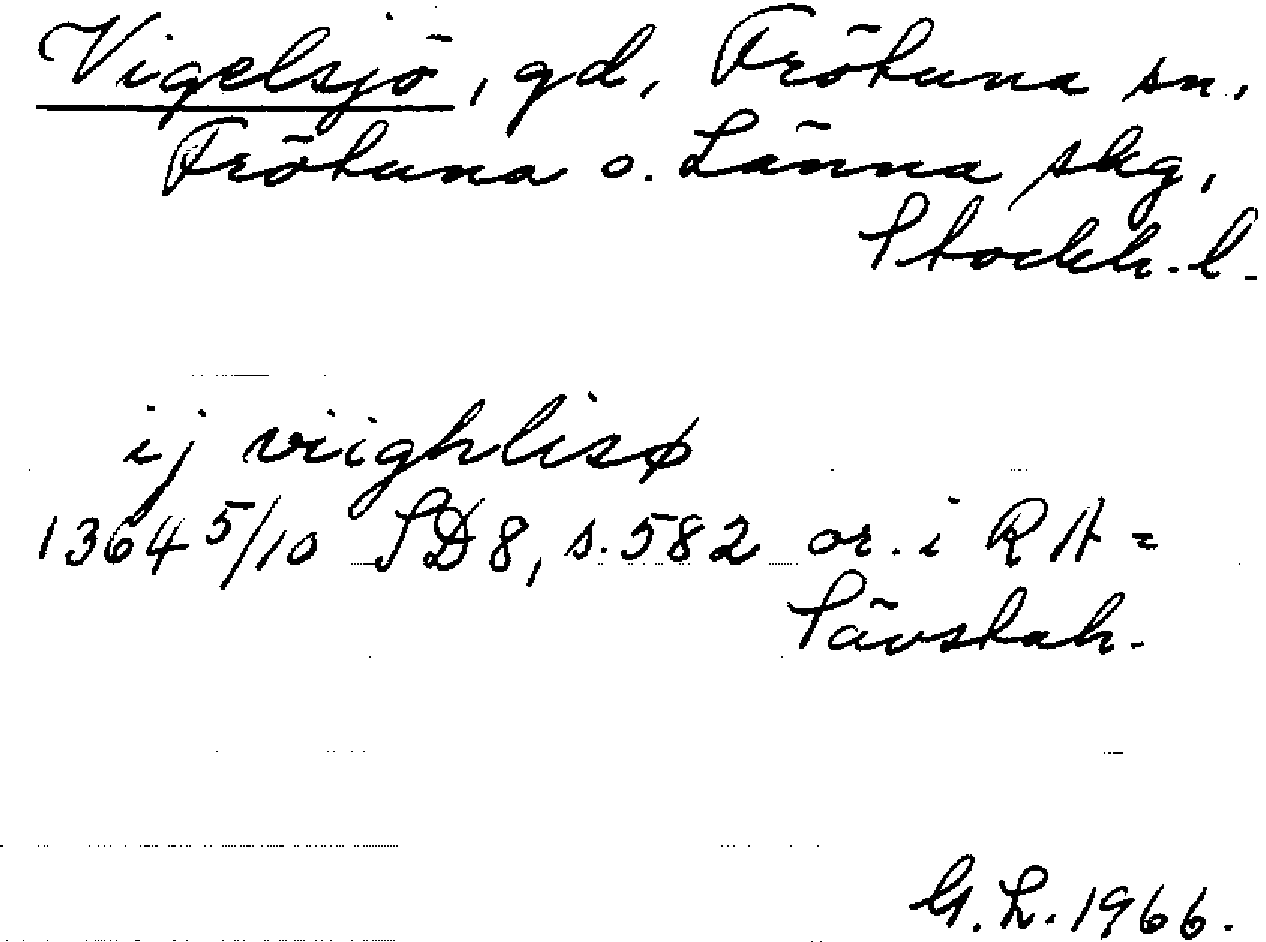 Vigelsjö, gd, Frötuna sn,
Frötuna o. Länna skg,
Stockh. l.
ij viighlisø
1364 5/10 SD 8, s. 582 or. i RA =
Sävstah.
G. L. 1966.